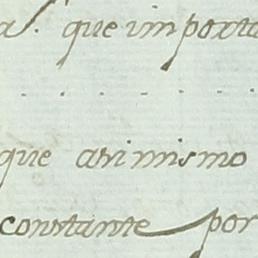 que importa
que asimismo
constante por